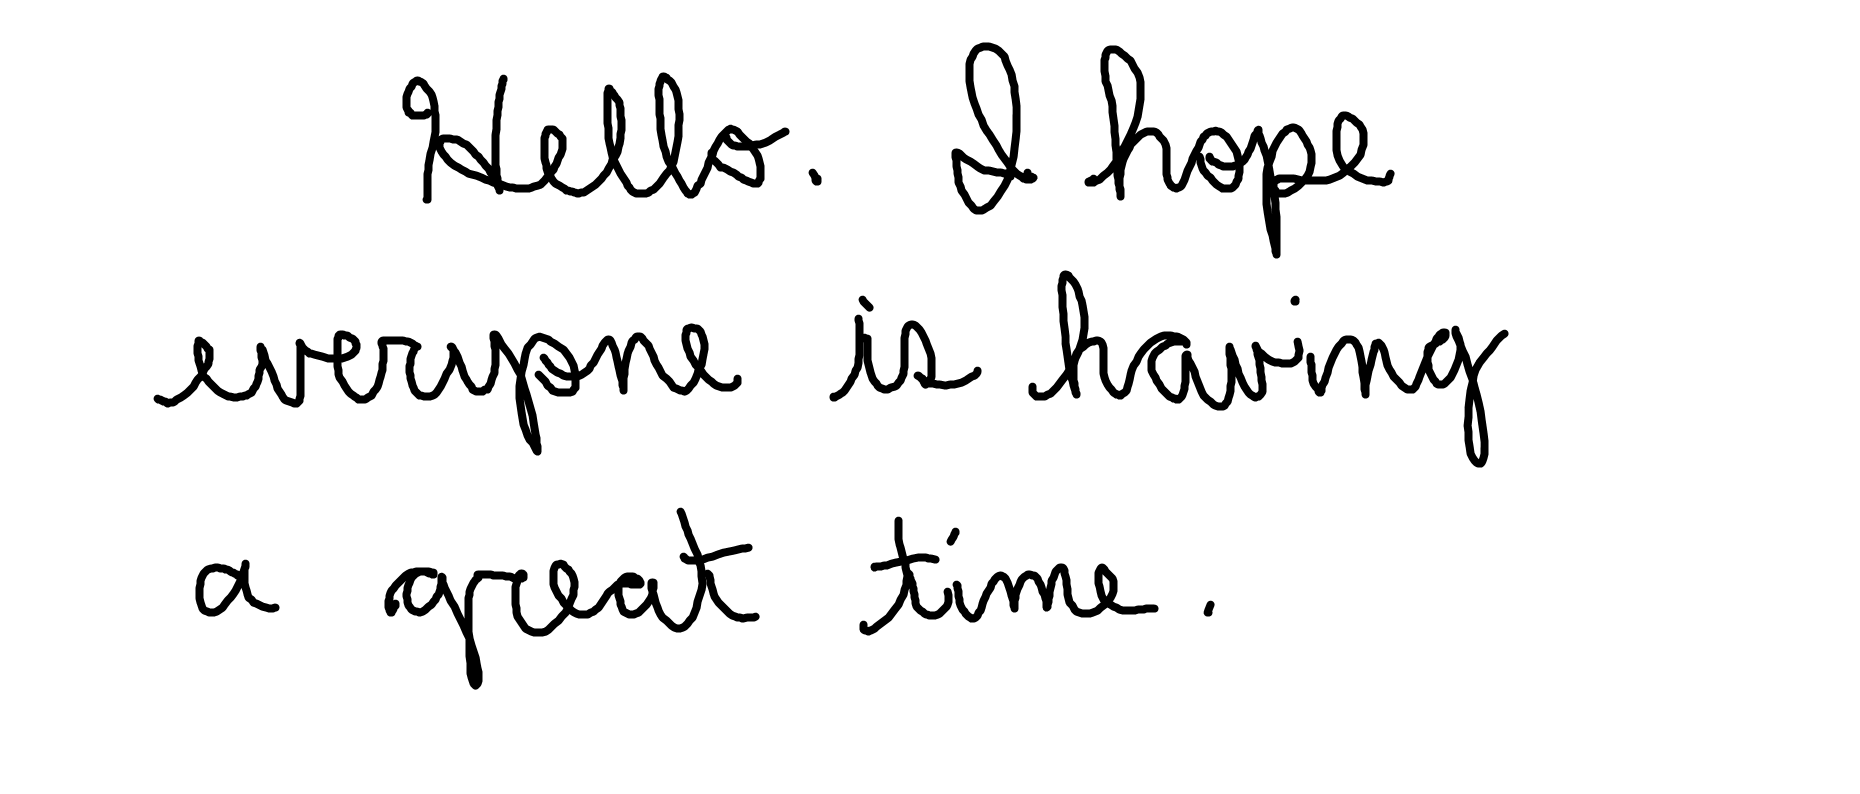 Hello. I hope
everyone is having
a great time.